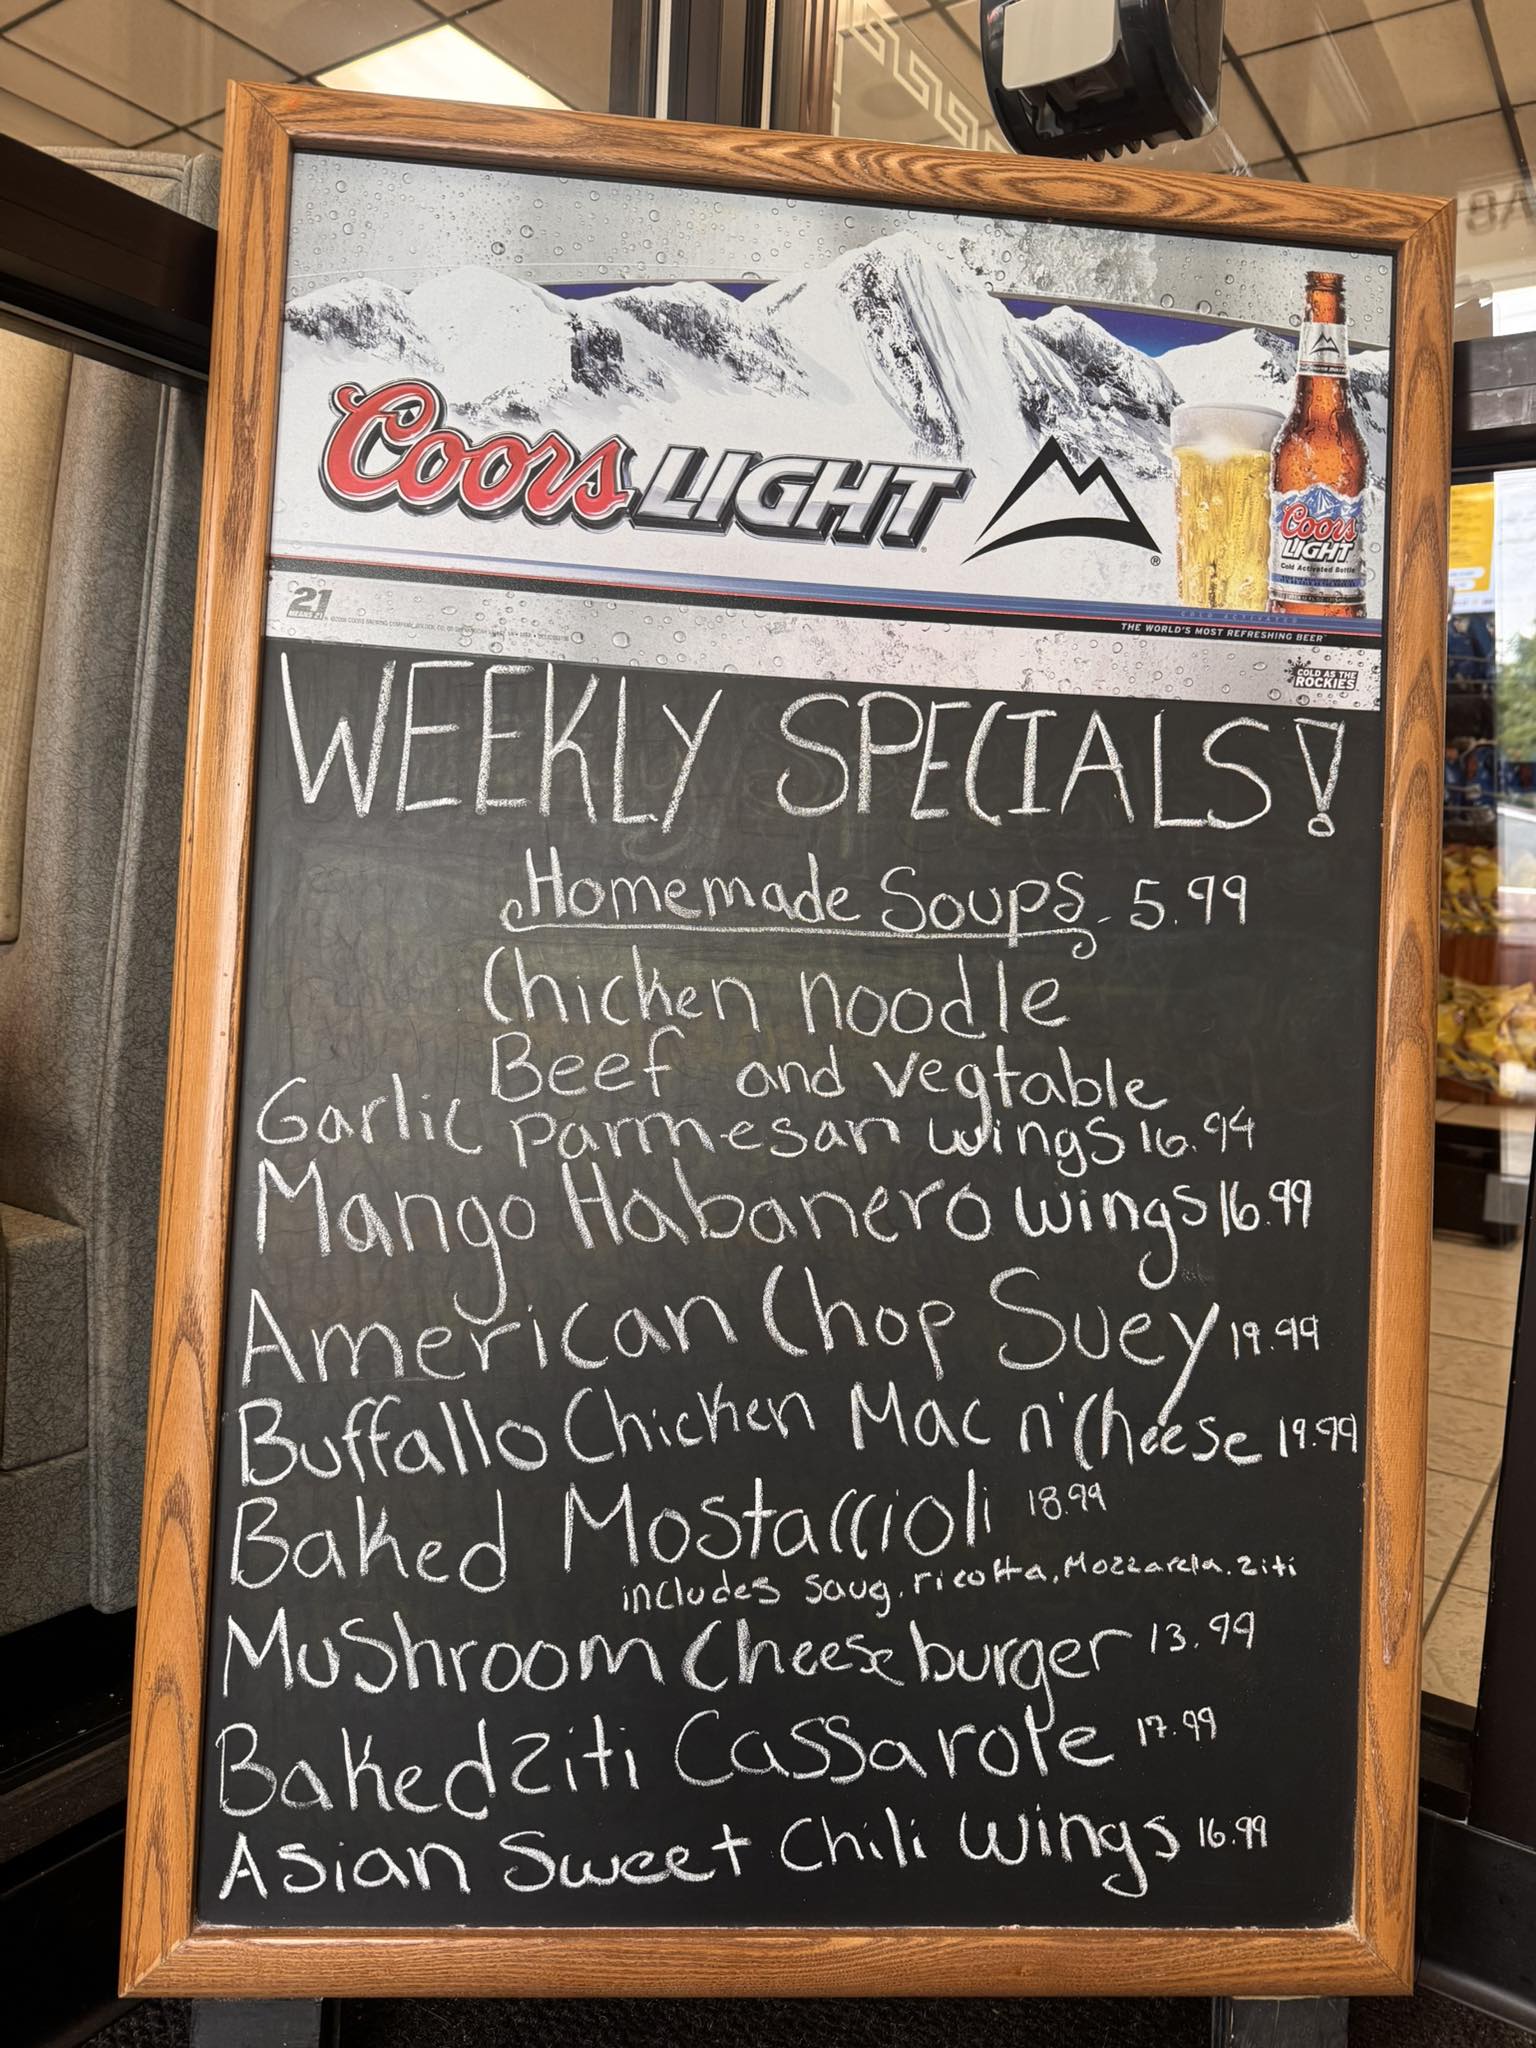 Coors LIGHT
®
Coors
LIGHT
Cold Activated Bottle
21
MEANS 21
COLD ACTIVATED
THE WORLD'S MOST REFRESHING BEER
COLD AS THE
ROCKIES
WEEKLY SPECIALS!
Homemade Soups - 5.99
Chicken noodle
Beef and vegtable
Garlic parmesan wings 16.94
Mango Habanero wings 16.99
American Chop Suey 19.99
Buffallo Chicken Mac n' Cheese 19.99
Baked Mostaccioli 18.99
includes Saug, ricotta, Mozzarela. Ziti
MuShroom Cheeseburger 13.99
Baked ziti Cassarole 17.99
Asian Sweet Chili Wings 16.99